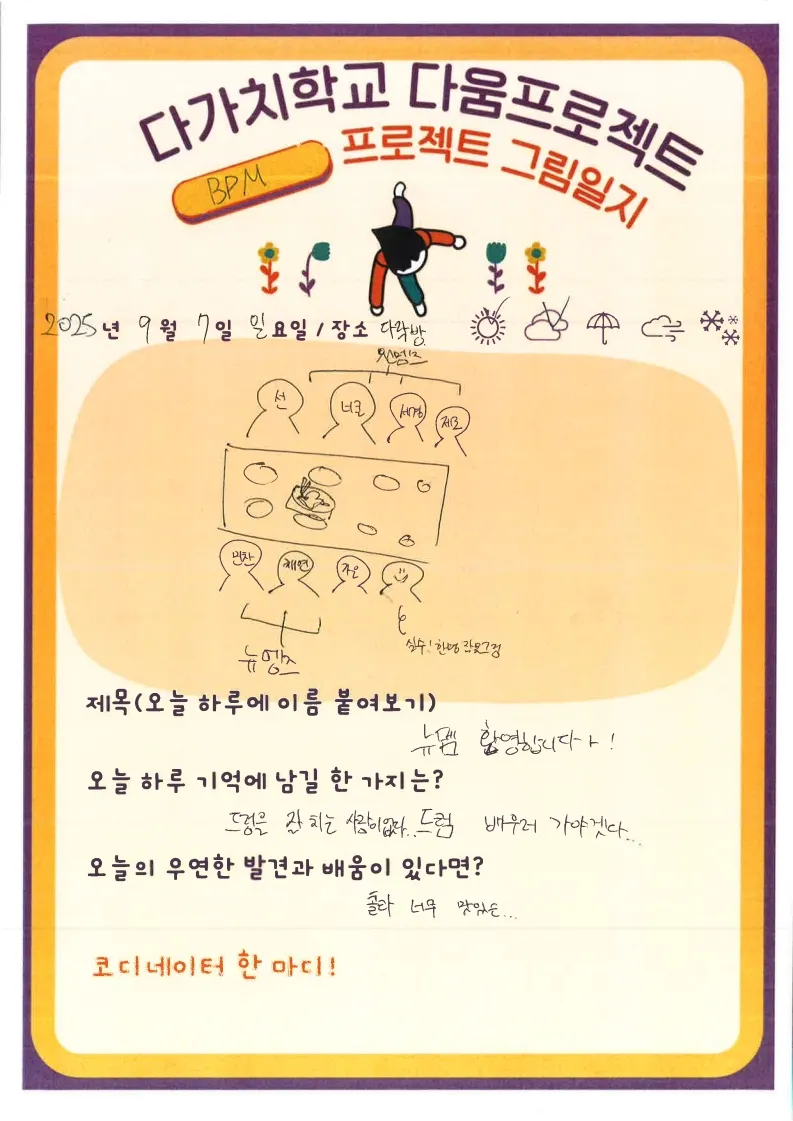 다가치학교 다움프로젝트
프로젝트 그림일지
BPM
2025년 9월 7일 일요일 / 장소 다락방
원멤즈
선 너코 세경 제로
민찬 채연 자오
뉴멤즈
실수! 한명 잘못그림
제목(오늘 하루에 이름 붙여보기)
뉴멤 환영합니다ㅏ!
오늘 하루 기억에 남길 한 가지는?
드럼을 잘 치는 사람이없다.. 드럼 배우러 가야겠다...
오늘의 우연한 발견과 배움이 있다면?
콜라 너무 맛있는...
코디네이터 한 마디!